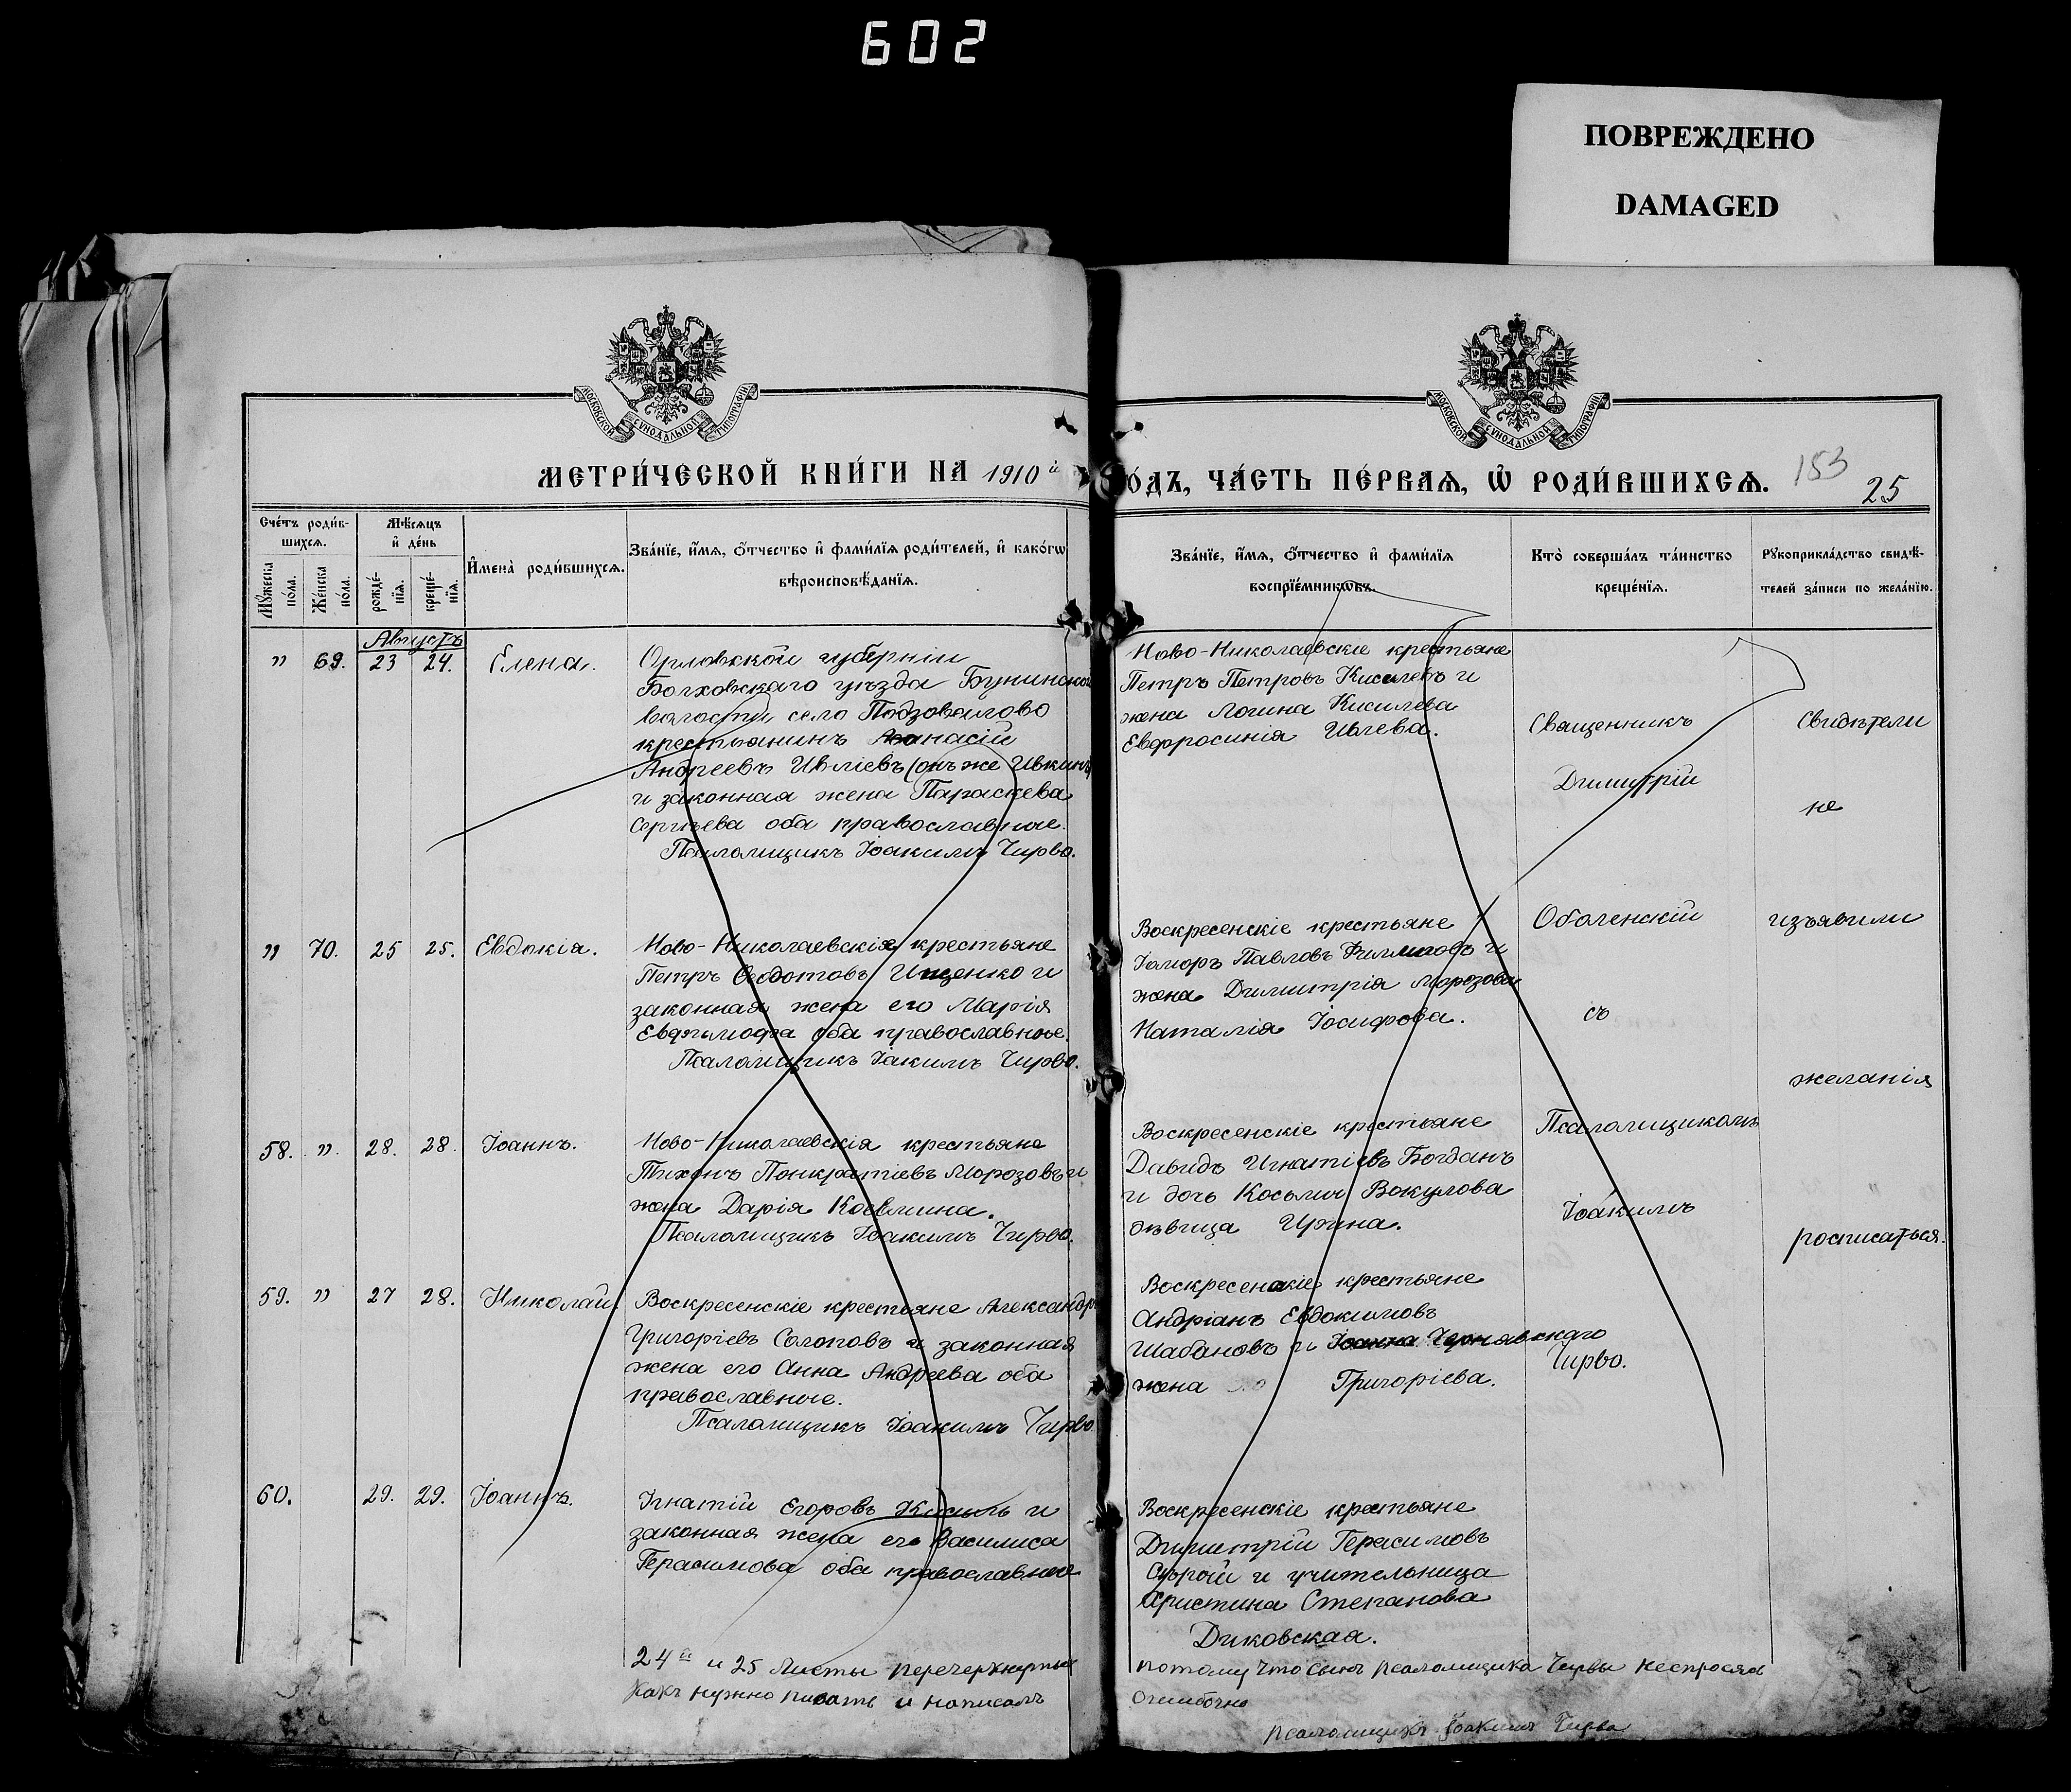 602
ПОВРЕЖДЕНО
DAMAGED
МОСКОВСКОЙ СУНОДАЛЬНОЙ ТИПОГРАФІИ
МОСКОВСКОЙ СУНОДАЛЬНОЙ ТИПОГРАФІИ
МЕТРИ́ЧЕСКОЙ КНИ́ГИ НА 1910 й
ОДЪ, ЧА́СТЬ ПЕ́РВАѦ, Ѡ҆ РОДИ́ВШИХСѦ.
153
25
Сче́тъ роди́в-
шихсѧ.
Мꙋ́жеска по́ла.
Же́нска по́ла.
Мѣ́сѧцъ
и҆ де́нь
рожде́-
нїѧ.
креще́-
нїѧ.
И҆мена̀ роди́вшихсѧ.
Зва́нїе, и҆́мѧ, ѻ҆́тчество и҆ фами́лїѧ роди́телей, и҆ како́гѡ
вѣроисповѣ́данїѧ.
Зва́нїе, и҆́мѧ, ѻ҆́тчество и҆ фами́лїѧ
воспрїе́мникѡвъ.
Кто̀ соверша́лъ та́инство
креще́нїѧ.
Рꙋкоприкла́дство свидѣ́-
телей за́писи по жела́нїю.
Августъ
" 69. 23 24. Елена.
Орловской губерніи
Болховскаго уѣзда Бунинской
волости село Подзовалово
крестьянинъ Аѳанасій
Андреевъ Ивліевъ (онъ же Ивкинъ)
и законная жена Параскева
Сергѣева оба православные.
Псаломщикъ Іоакимъ Чирво.
Ново-Николаевскіе крестьяне
Петръ Петровъ Киселевъ и
жена Логина Кисилева
Евфросинія Ивлева.
Священникъ
Димитрій
Оболенскій
съ
Псаломщикомъ
Іоакимъ
Чирво.
Свидѣтели
не
изъявили
желанія
росписаться.
" 70. 25 25. Евдокія.
Ново-Николаевскіе крестьяне
Петръ Ѳедотовъ Ищенко и
законная жена его Марія
оба православные.
Псаломщикъ Іакимъ Чирво.
Воскресенскіе крестьяне
Павловъ Филлиповъ и
жена Димитрія Морозова
Наталія Іосифова.
58. " 28. 28. Іоаннъ.
Ново-Николаевскія крестьяне
Тихонъ Понкратіевъ Морозовъ и
жена Дарія Косьмина.
Псаломщикъ Іоакимъ Чирво.
Воскресенскіе крестьяне
Давидъ Игнатіевъ Богданъ
и дочь Косьмы Вокулова
дѣвица Ирина.
59. " 27 28. Николай
Воскресенскіе крестьяне Александръ
Григоріевъ Солоповъ и законная
жена его Анна Андреева оба
православные.
Псаломщикъ Іоакимъ Чирво
Воскресенскіе крестьяне
Андріанъ Евдокимовъ
Шабановъ и Іоанна Чернявскаго
жена Григоріева.
60. 29. 29. Іоаннъ.
Игнатій Егоровъ Жигиль и
законная жена его Василиса
Герасимова оба православные
Воскресенскіе крестьяне
Димитрій Герасимовъ
Сырой и учительница
Христина Степанова
Диковская.
24й и 25 листы перечеркнутые
какъ нужно писать и написалъ
потому что сынъ псаломщика Чирвы неспросясь
ошибочно
псаломщикъ Іоакимъ Чирва